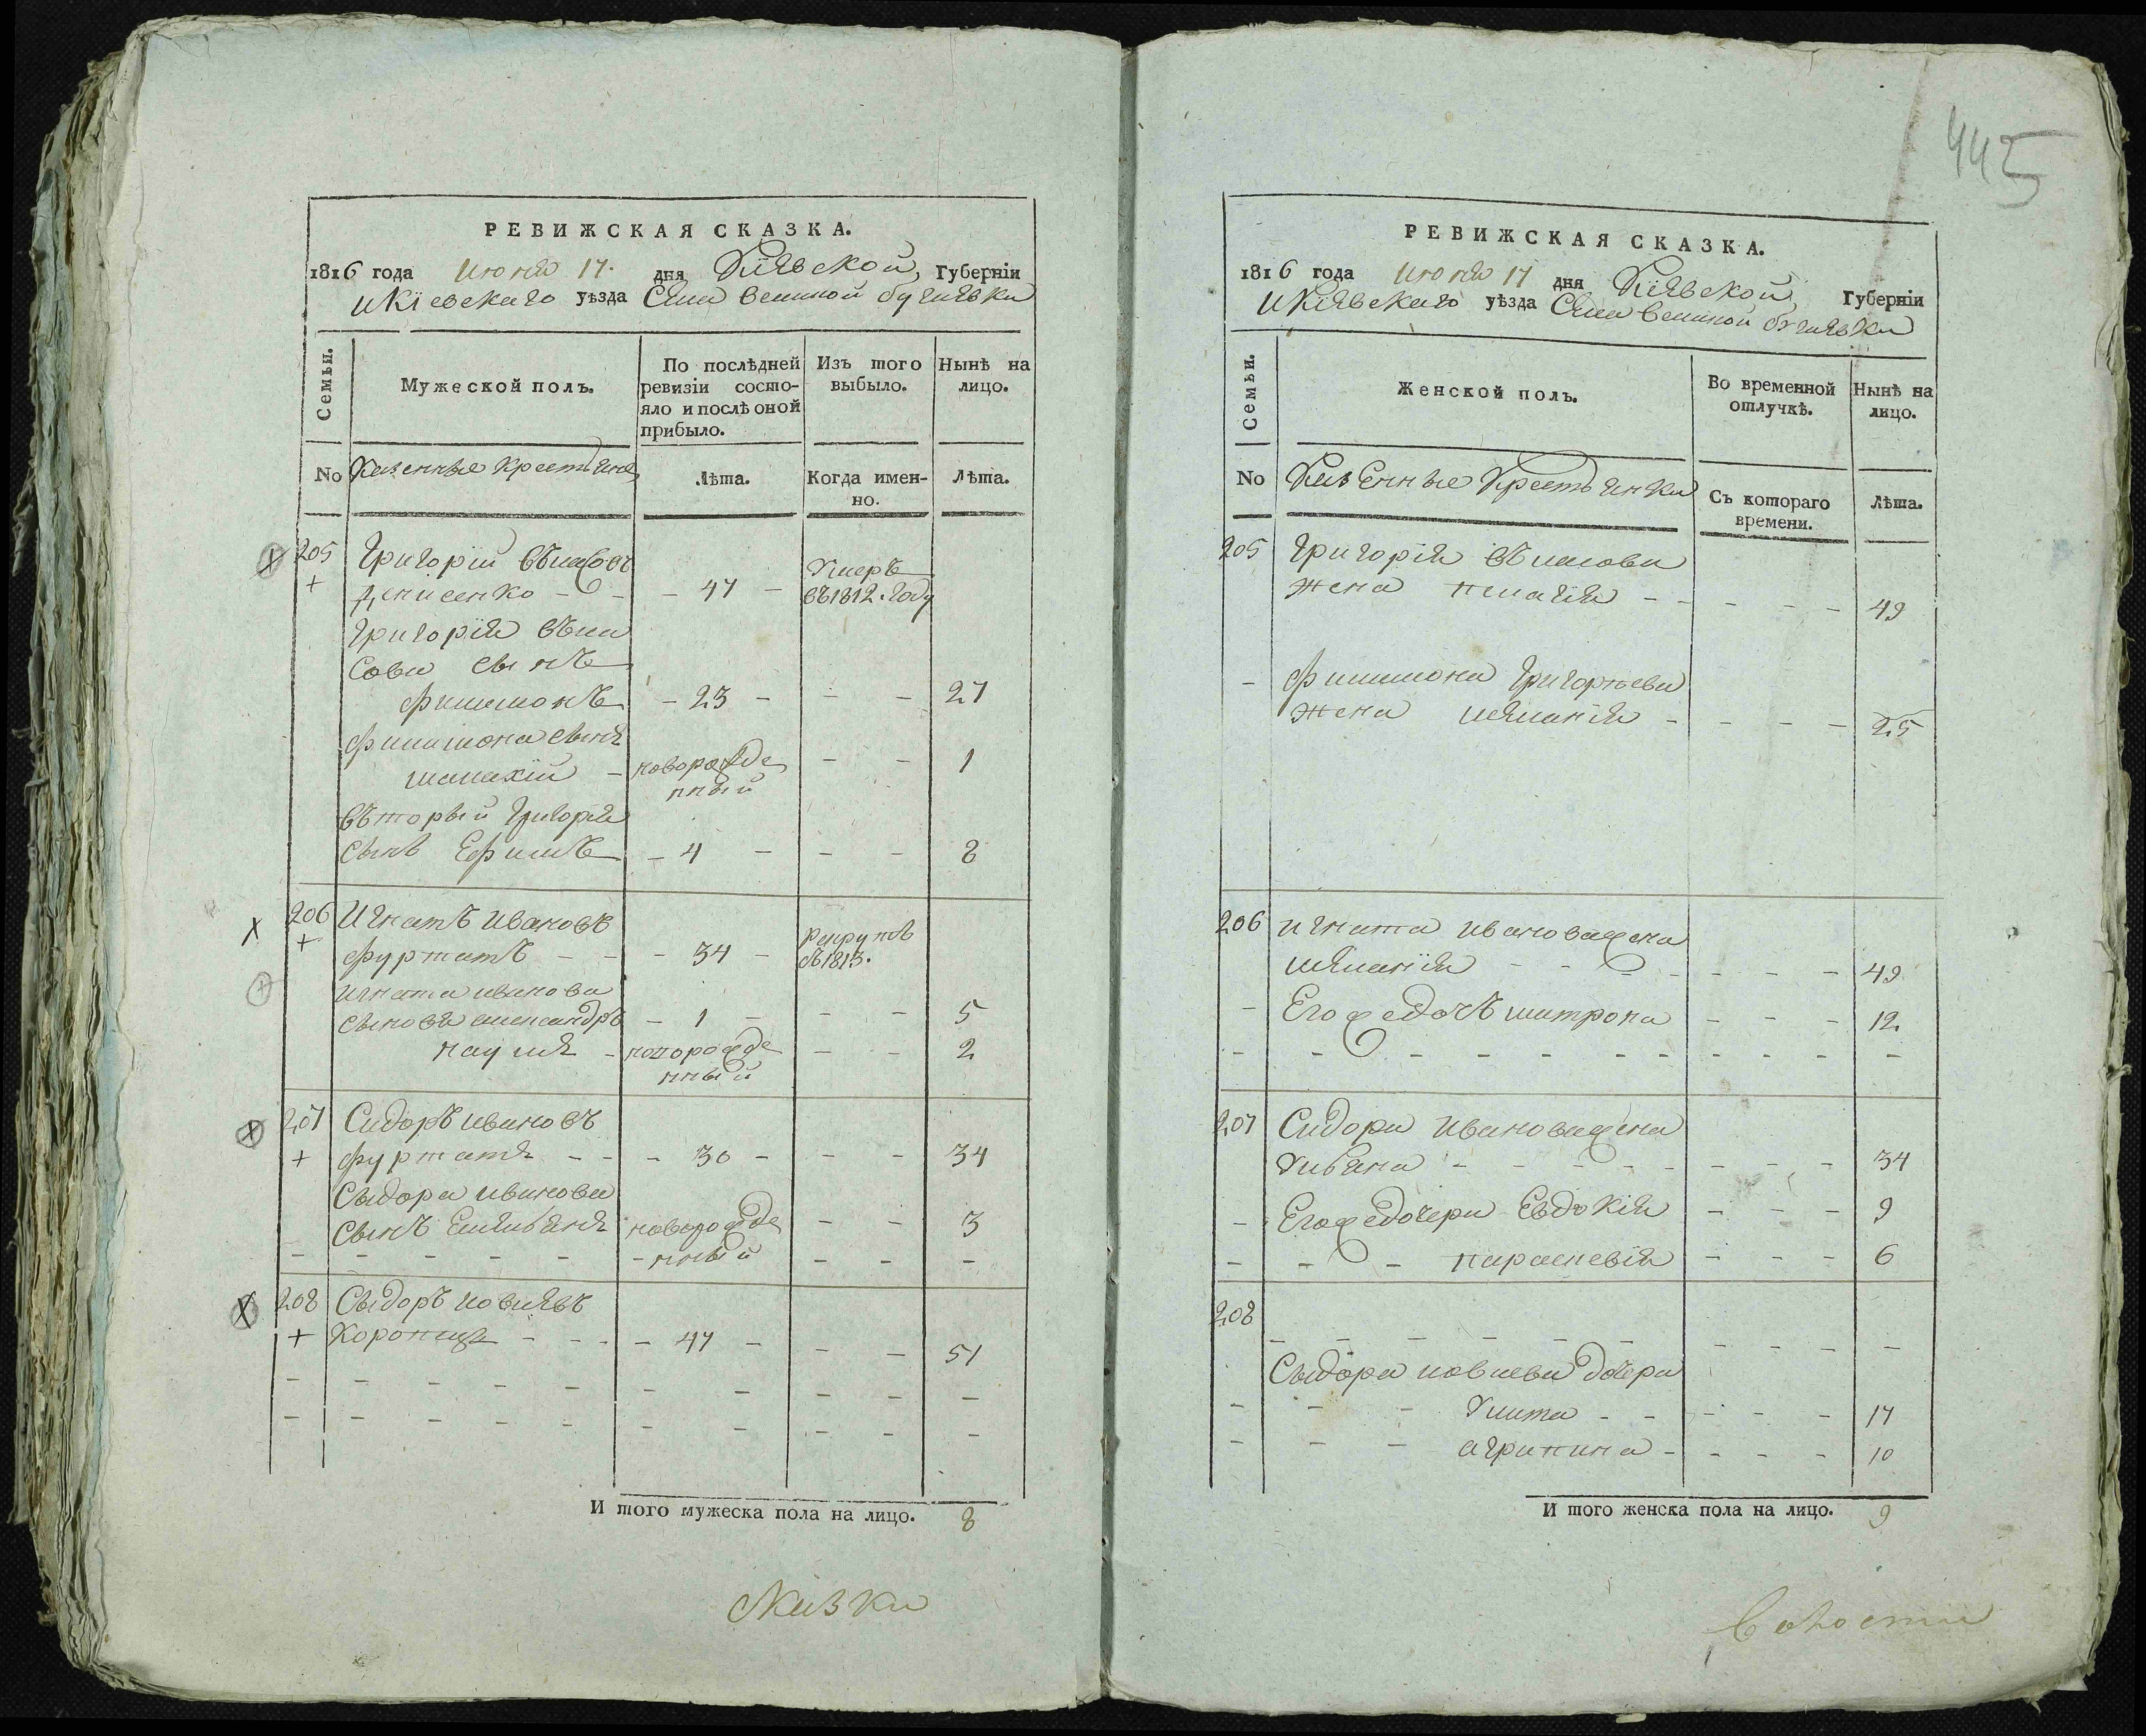 445
РЕВИЖСКАЯ СКАЗКА.
1816 года Июня 17. дня Кіевской Губерніи
и Кіевскаго уѣзда Села Великой бугаевки
Семьи.
Мужеской полъ.
По послѣдней ревизіи состо-
яло и послѣ оной
прибыло.
Изъ того
выбыло.
Нынѣ на
лицо.
No Казенные Крестьяне
Лѣта.
Когда имен-
но.
Лѣта.
205 Григорій Власовъ
Денисенко - - 47 - Умеръ въ 1812. году
Григорія Вла
сова сынъ
Филимонъ - 23 - - - 27
Филимона сынъ
Малахій - новорожде
нный - - 1
Вторый Григорія
сынъ Ефимъ - 4 - - - 8
206 Игнатъ Ивановъ
Фурматъ - - - 34 - рекрутъ въ 1813.
Игната Иванова
сыновья александръ - 1 - - - 5
наумъ - новорожде
нный - - 2
207 Сидоръ Ивановъ
Фурматъ - - - 30 - - - 34
Сыдора Иванова
сынъ Емельянъ новорожде
нный - - 3
208 Сыдоръ иовлевъ
- 47 - - - 51
И того мужеска пола на лицо. 8
РЕВИЖСКАЯ СКАЗКА.
1816 года Июня 17 дня Кіевской Губерніи
и Кіевскаго уѣзда Села Великой бугаевки
Семьи.
Женской полъ.
Во временной
отлучкѣ.
Нынѣ на
лицо.
No Казенные Крестьянки
Съ котораго
времени.
Лѣта.
205 Григорія Власова
жена пелагія - - - - - 49
- Филимона Григорьева
жена меланія - - - - 25
206 игната иванова жена
меланія - - - - - - - 49
- Его же дочь матрона - - - 12
207 Сидора иванова жена
Улияна - - - - - - - 34
- Его же дочери Евдокія - - - 9
- - - параскевія - - - 6
208
Сыдора иовлева дочери
- - - Улита - - - - - 17
- - - агрипина - - - - 10
И того женска пола на лицо. 9
волости